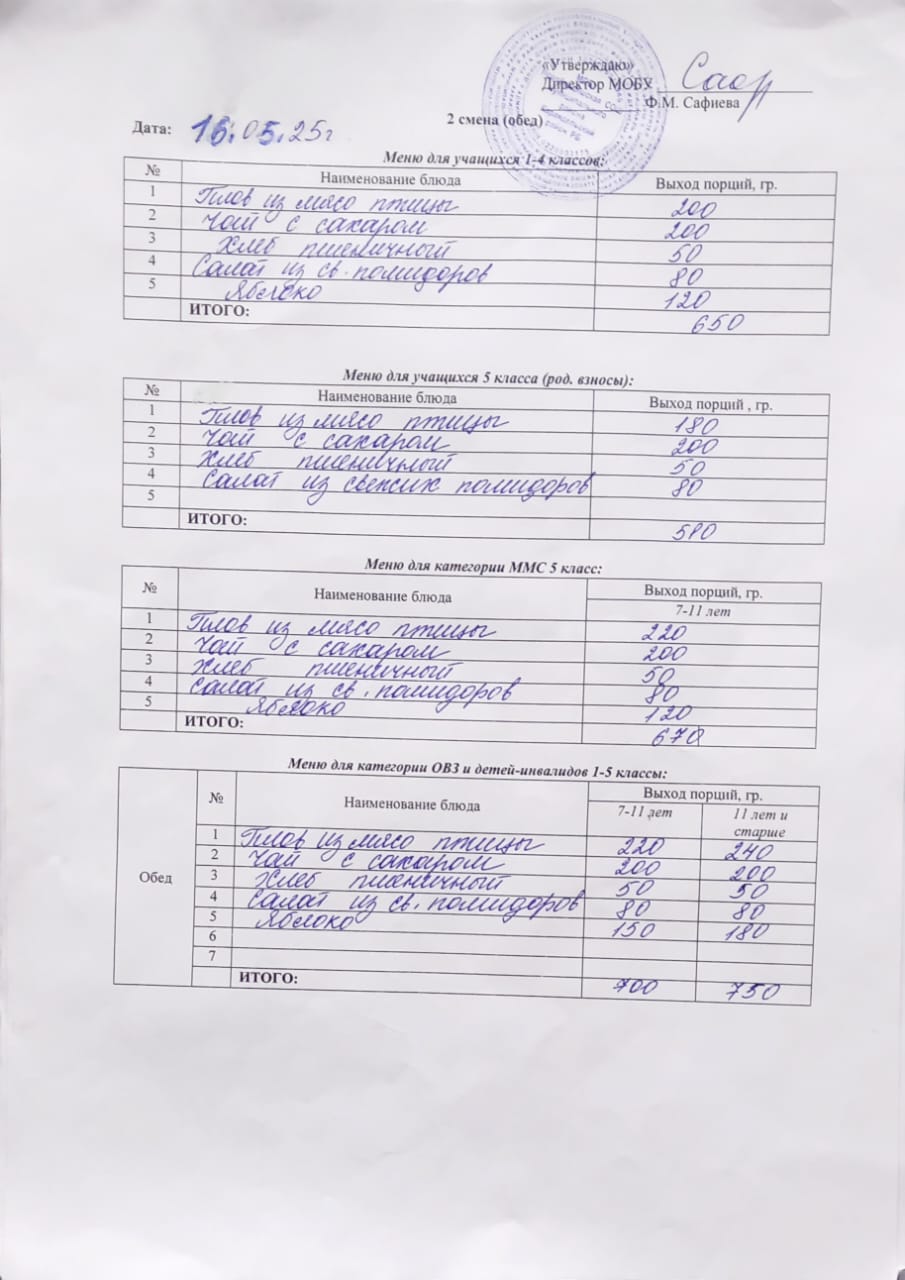 «Утверждаю»
Директор МОБУ
Ф.М. Сафиева
2 смена (обед)
Дата: 16.05.25г
Меню для учащихся 1-4 классов:
№ Наименование блюда Выход порций, гр.
1 Плов из мясо птицы 200
2 Чай с сахаром 200
3 Хлеб пшеничный 50
4 Салат из св. помидоров 80
5 Яблоко 120
ИТОГО: 650
Меню для учащихся 5 класса (род. взносы):
№ Наименование блюда Выход порций , гр.
1 Плов из мясо птицы 180
2 Чай с сахаром 200
3 Хлеб пшеничный 50
4 Салат из свежих помидоров 80
5
ИТОГО: 510
Меню для категории ММС 5 класс:
№ Наименование блюда Выход порций, гр.
7-11 лет
1 Плов из мясо птицы 220
2 Чай с сахаром 200
3 Хлеб пшеничный 50
4 Салат из св. помидоров 80
5 Яблоко 120
ИТОГО: 670
Меню для категории ОВЗ и детей-инвалидов 1-5 классы:
№ Наименование блюда Выход порций, гр.
7-11 лет 11 лет и старше
Обед
1 Плов из мясо птицы 220 240
2 Чай с сахаром 200 200
3 Хлеб пшеничный 50 50
4 Салат из св. помидоров 80 80
5 Яблоко 150 180
6
7
ИТОГО: 700 750